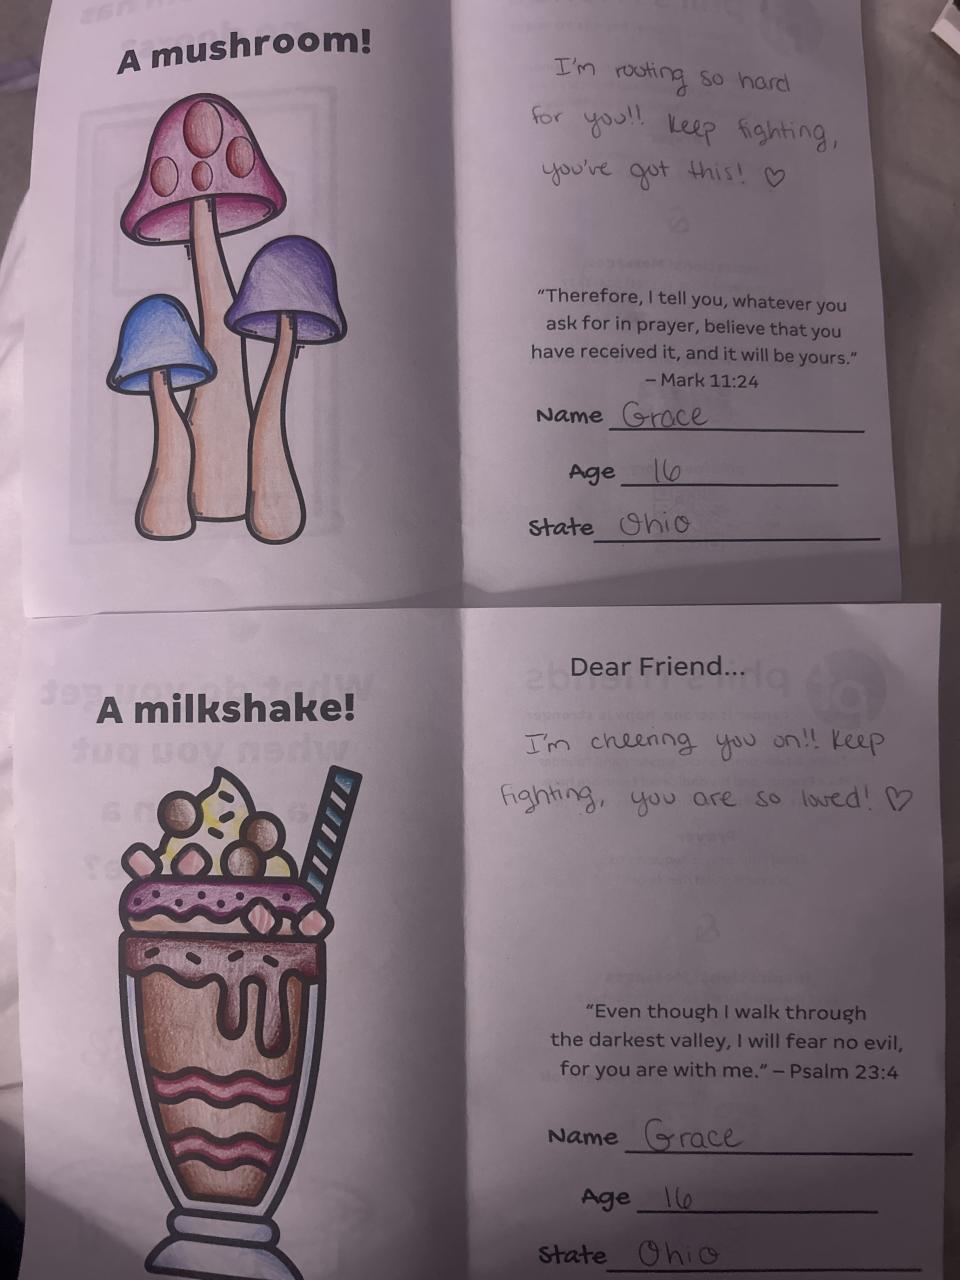 A mushroom!
I'm rooting so hard
for you!! Keep fighting,
you've got this! ♡
“Therefore, I tell you, whatever you
ask for in prayer, believe that you
have received it, and it will be yours.”
– Mark 11:24
Name Grace
Age 16
State Ohio
A milkshake!
Dear Friend...
I'm cheering you on!! Keep
fighting, you are so loved! ♡
“Even though I walk through
the darkest valley, I will fear no evil,
for you are with me.” – Psalm 23:4
Name Grace
Age 16
State Ohio
phil's friends
What do you get
when you put